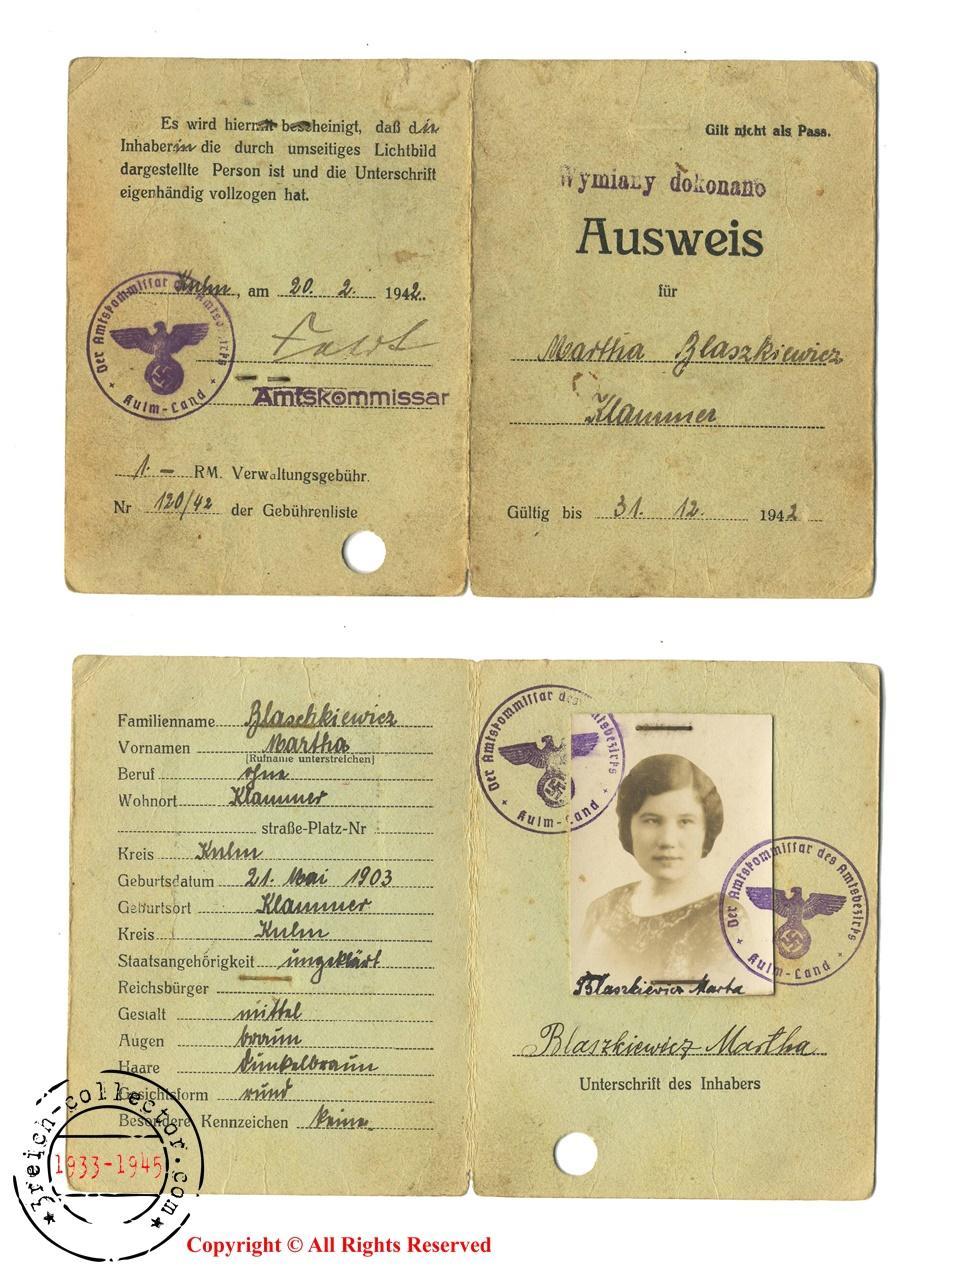 Es wird hiermit bescheinigt, daß die
Inhaberin die durch umseitiges Lichtbild
dargestellte Person ist und die Unterschrift
eigenhändig vollzogen hat.
Kulm, am 20. 2. 1942.
Amtskommissar
Der Amtskommissar des Amtsbezirks
+ Kulm-Land +
1.— RM. Verwaltungsgebühr.
Nr 120/42 der Gebührenliste
Gilt nicht als Pass.
Wymiany dokonano
Ausweis
für
Martha Blaszkiewicz
Klammer
Gültig bis 31. 12. 1942
Familienname Blaschkiewicz
Vornamen Martha
[Rufname unterstreichen]
Beruf ohne
Wohnort Klammer
straße-Platz-Nr
Kreis Kulm
Geburtsdatum 21. Mai 1903
Geburtsort Klammer
Kreis Kulm
Staatsangehörigkeit ungeklärt
Reichsbürger
Gestalt mittel
Augen braun
Haare dunkelbraun
Gesichtsform rund
Besondere Kennzeichen keine
Der Amtskommissar des Amtsbezirks
+ Kulm-Land +
Der Amtskommissar des Amtsbezirks
+ Kulm-Land +
Blaszkiewicz Marta
Blaszkiewicz Martha
Unterschrift des Inhabers
3reich-collector.com
1933-1945
Copyright © All Rights Reserved